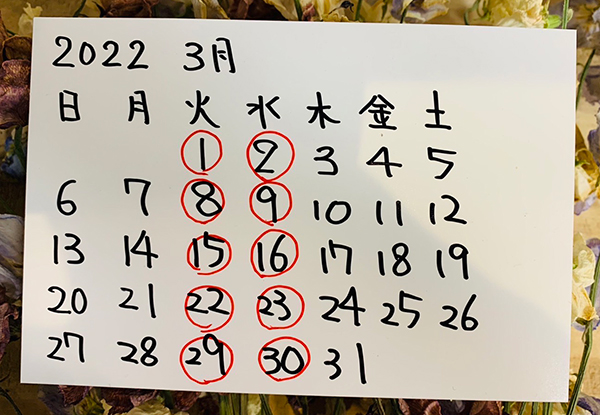 2022 3月
日 月 火 水 木 金 土
1 2 3 4 5
6 7 8 9 10 11 12
13 14 15 16 17 18 19
20 21 22 23 24 25 26
27 28 29 30 31